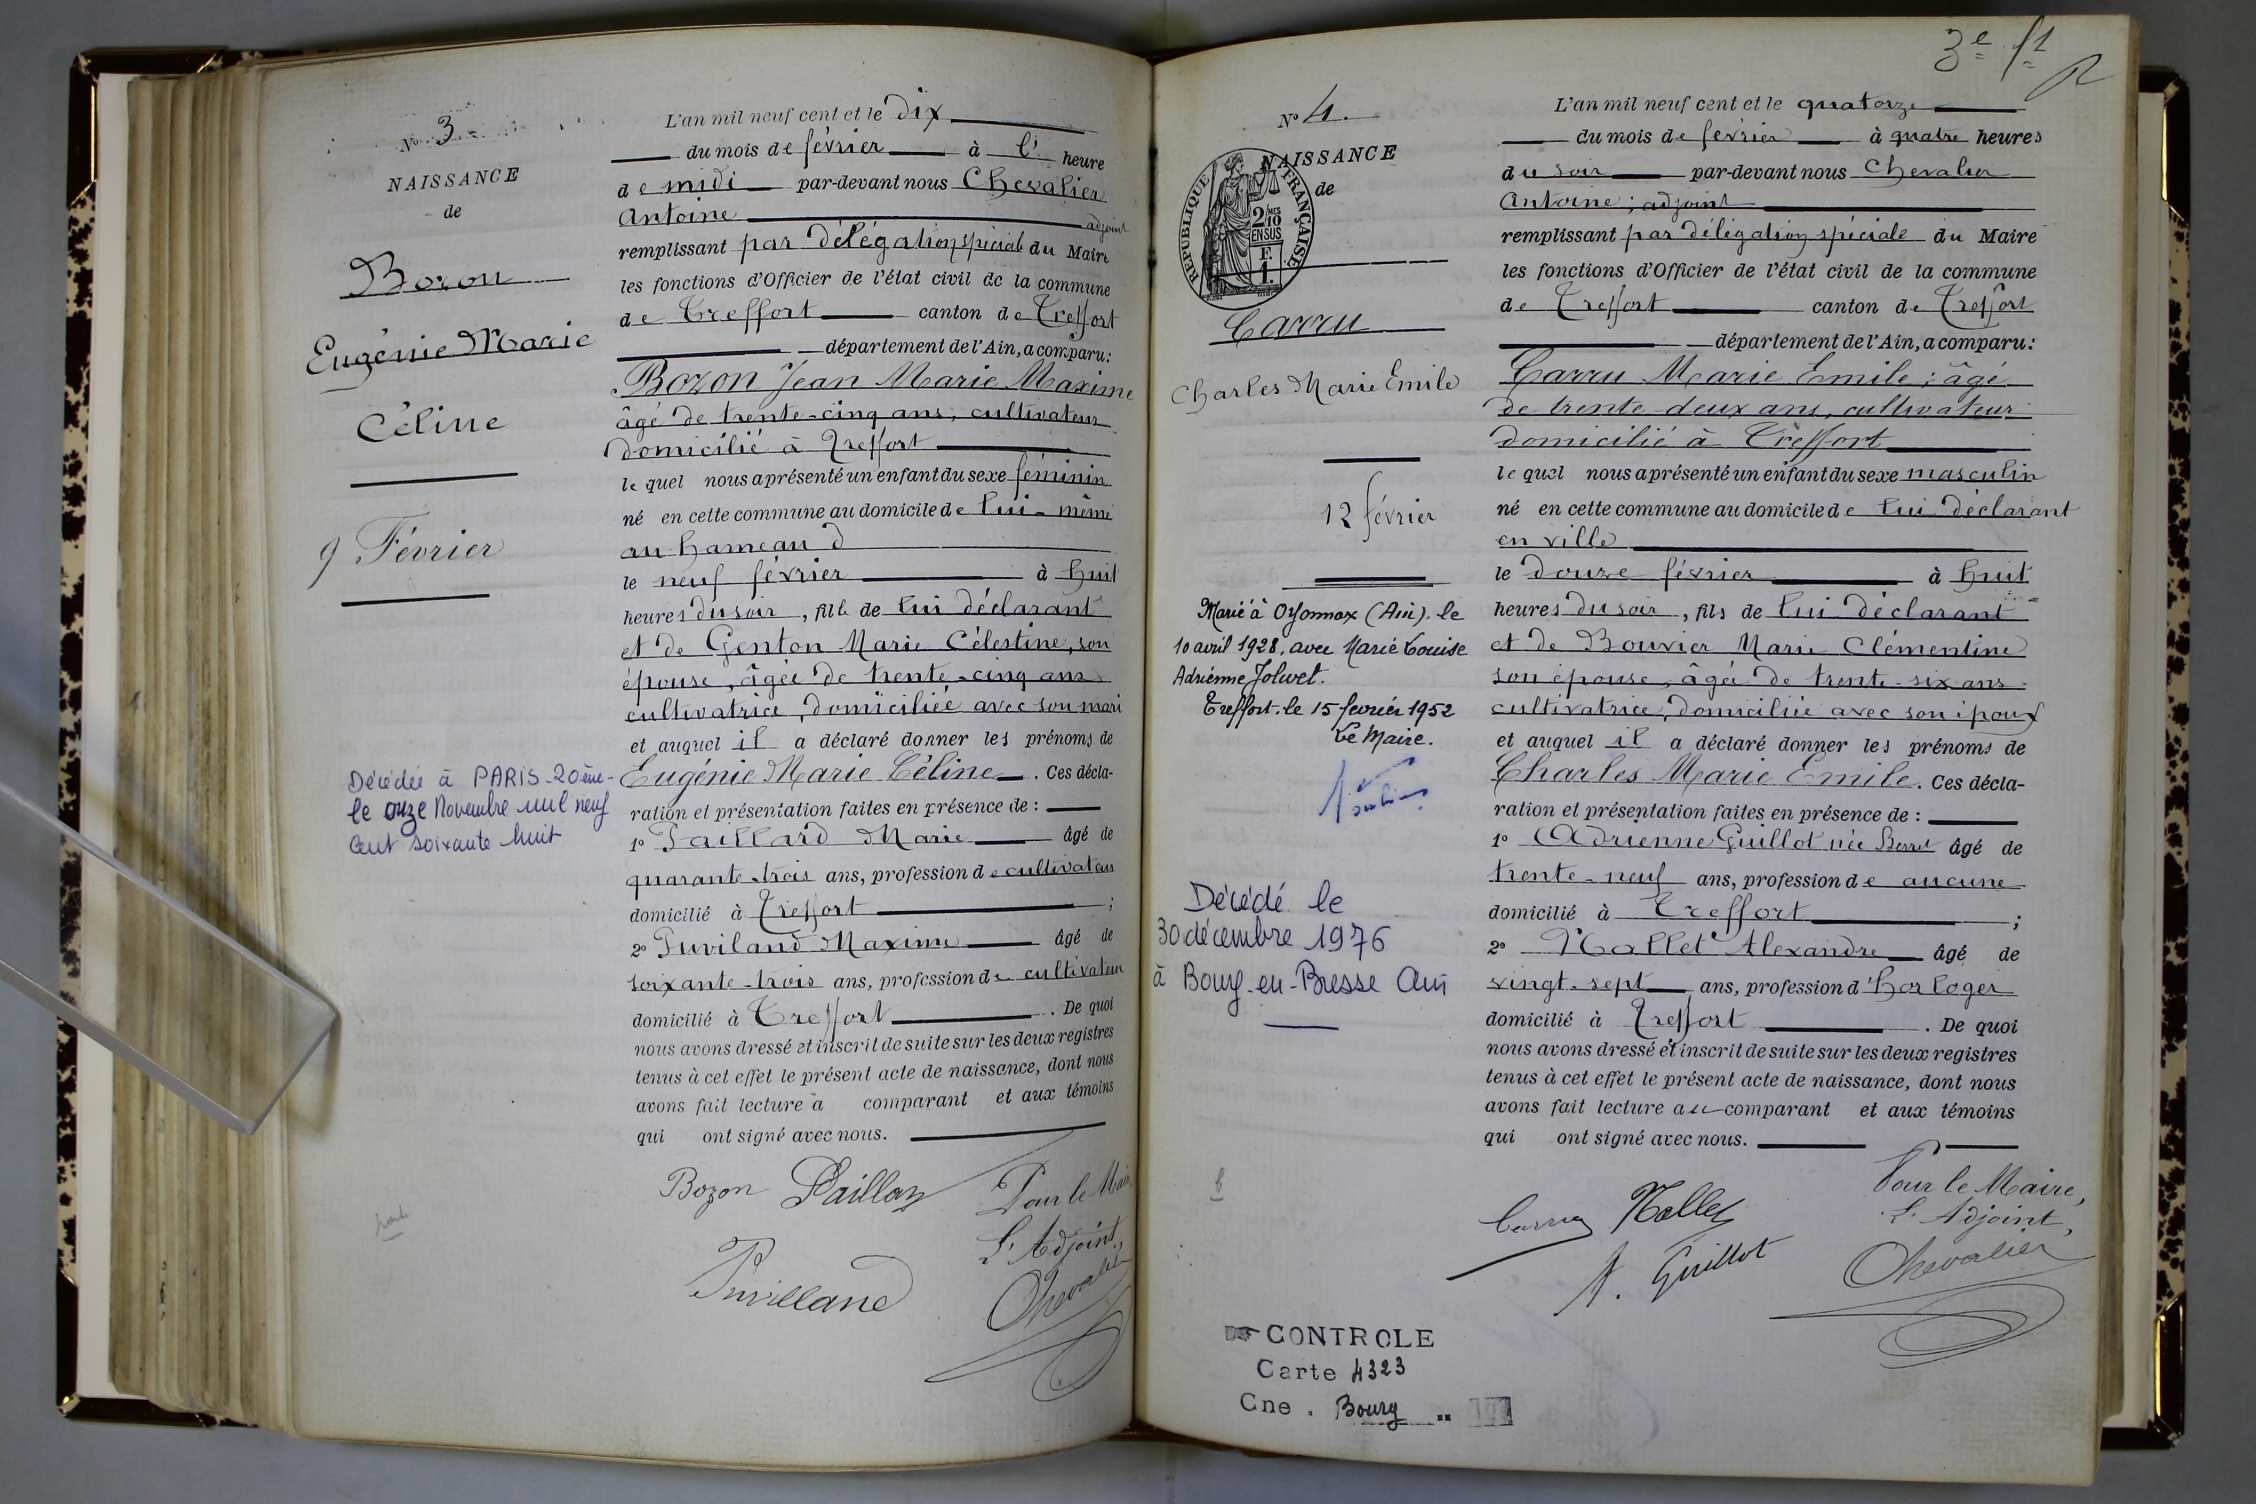 N° 3
NAISSANCE
de
Bozon
Eugénie Marie
Céline
9 Février
Décédée à PARIS-20ème-
le onze Novembre mil neuf
Cent soixante huit
L'an mil neuf cent et le dix
du mois de février à l' heure
de midi par-devant nous Chevalier
Antoine adjoint
remplissant par délégation spéciale du Maire
les fonctions d'Officier de l'état civil de la commune
de Treffort canton de Treffort
département de l'Ain, a comparu:
Bozon Jean Marie Maxime
âgé de trente-cinq ans, cultivateur
domicilié à Treffort
lequel nous a présenté un enfant du sexe féminin
né en cette commune au domicile de lui-même
au hameau d
le neuf février à huit
heures du soir, fille de lui déclarant
et de Genton Marie Célestine, son
épouse, âgée de trente-cinq ans
cultivatrice, domiciliée avec son mari
et auquel il a déclaré donner les prénoms de
Eugénie Marie Céline. Ces décla-
ration et présentation faites en présence de :
1° Paillard Marie âgé de
quarante-trois ans, profession de cultivateur
domicilié à Treffort ;
2° Puviland Maxime âgé de
soixante-trois ans, profession de cultivateur
domicilié à Treffort . De quoi
nous avons dressé et inscrit de suite sur les deux registres
tenus à cet effet le présent acte de naissance, dont nous
avons fait lecture à comparant et aux témoins
qui ont signé avec nous.
Bozon Paillard Pour le Maire
L'Adjoint,
Puvilland Chevalier
3e f1
N° 4.
NAISSANCE
de
RÉPUBLIQUE FRANÇAISE
2/10 MES
EN SUS
F.
1.
Carru
Charles Marie Emile
12 février
Marié à Oyonnax (Ain). le
10 avril 1928, avec Marie Louise
Adrienne Jolivet.
Treffort. le 15 fevrier 1952
Le Maire.
Décédé le
30 décembre 1976
à Bourg-en-Bresse Ain
L'an mil neuf cent et le quatorze
du mois de février à quatre heures
du soir par-devant nous Chevalier
Antoine; adjoint
remplissant par délégation spéciale du Maire
les fonctions d'Officier de l'état civil de la commune
de Treffort canton de Treffort
département de l'Ain, a comparu:
Carru Marie Emile; âgé
de trente-deux ans, cultivateur
domicilié à Treffort
lequel nous a présenté un enfant du sexe masculin
né en cette commune au domicile de lui déclarant
en ville
le douze février à huit
heures du soir, fils de lui déclarant
et de Bouvier Marie Clémentine
son épouse, âgée de trente-six ans
cultivatrice, domiciliée avec son époux
et auquel il a déclaré donner les prénoms de
Charles Marie Emile. Ces décla-
ration et présentation faites en présence de :
1° Adrienne Guillot née âgé de
trente-neuf ans, profession de aucune
domicilié à Treffort ;
2° Mallet Alexandre âgé de
vingt-sept ans, profession d'horloger
domicilié à Treffort . De quoi
nous avons dressé et inscrit de suite sur les deux registres
tenus à cet effet le présent acte de naissance, dont nous
avons fait lecture au comparant et aux témoins
qui ont signé avec nous.
Carru Mallet Pour le Maire,
L'Adjoint,
A. Guillot Chevalier
CONTROLE
Carte 4323
Cne. Bourg